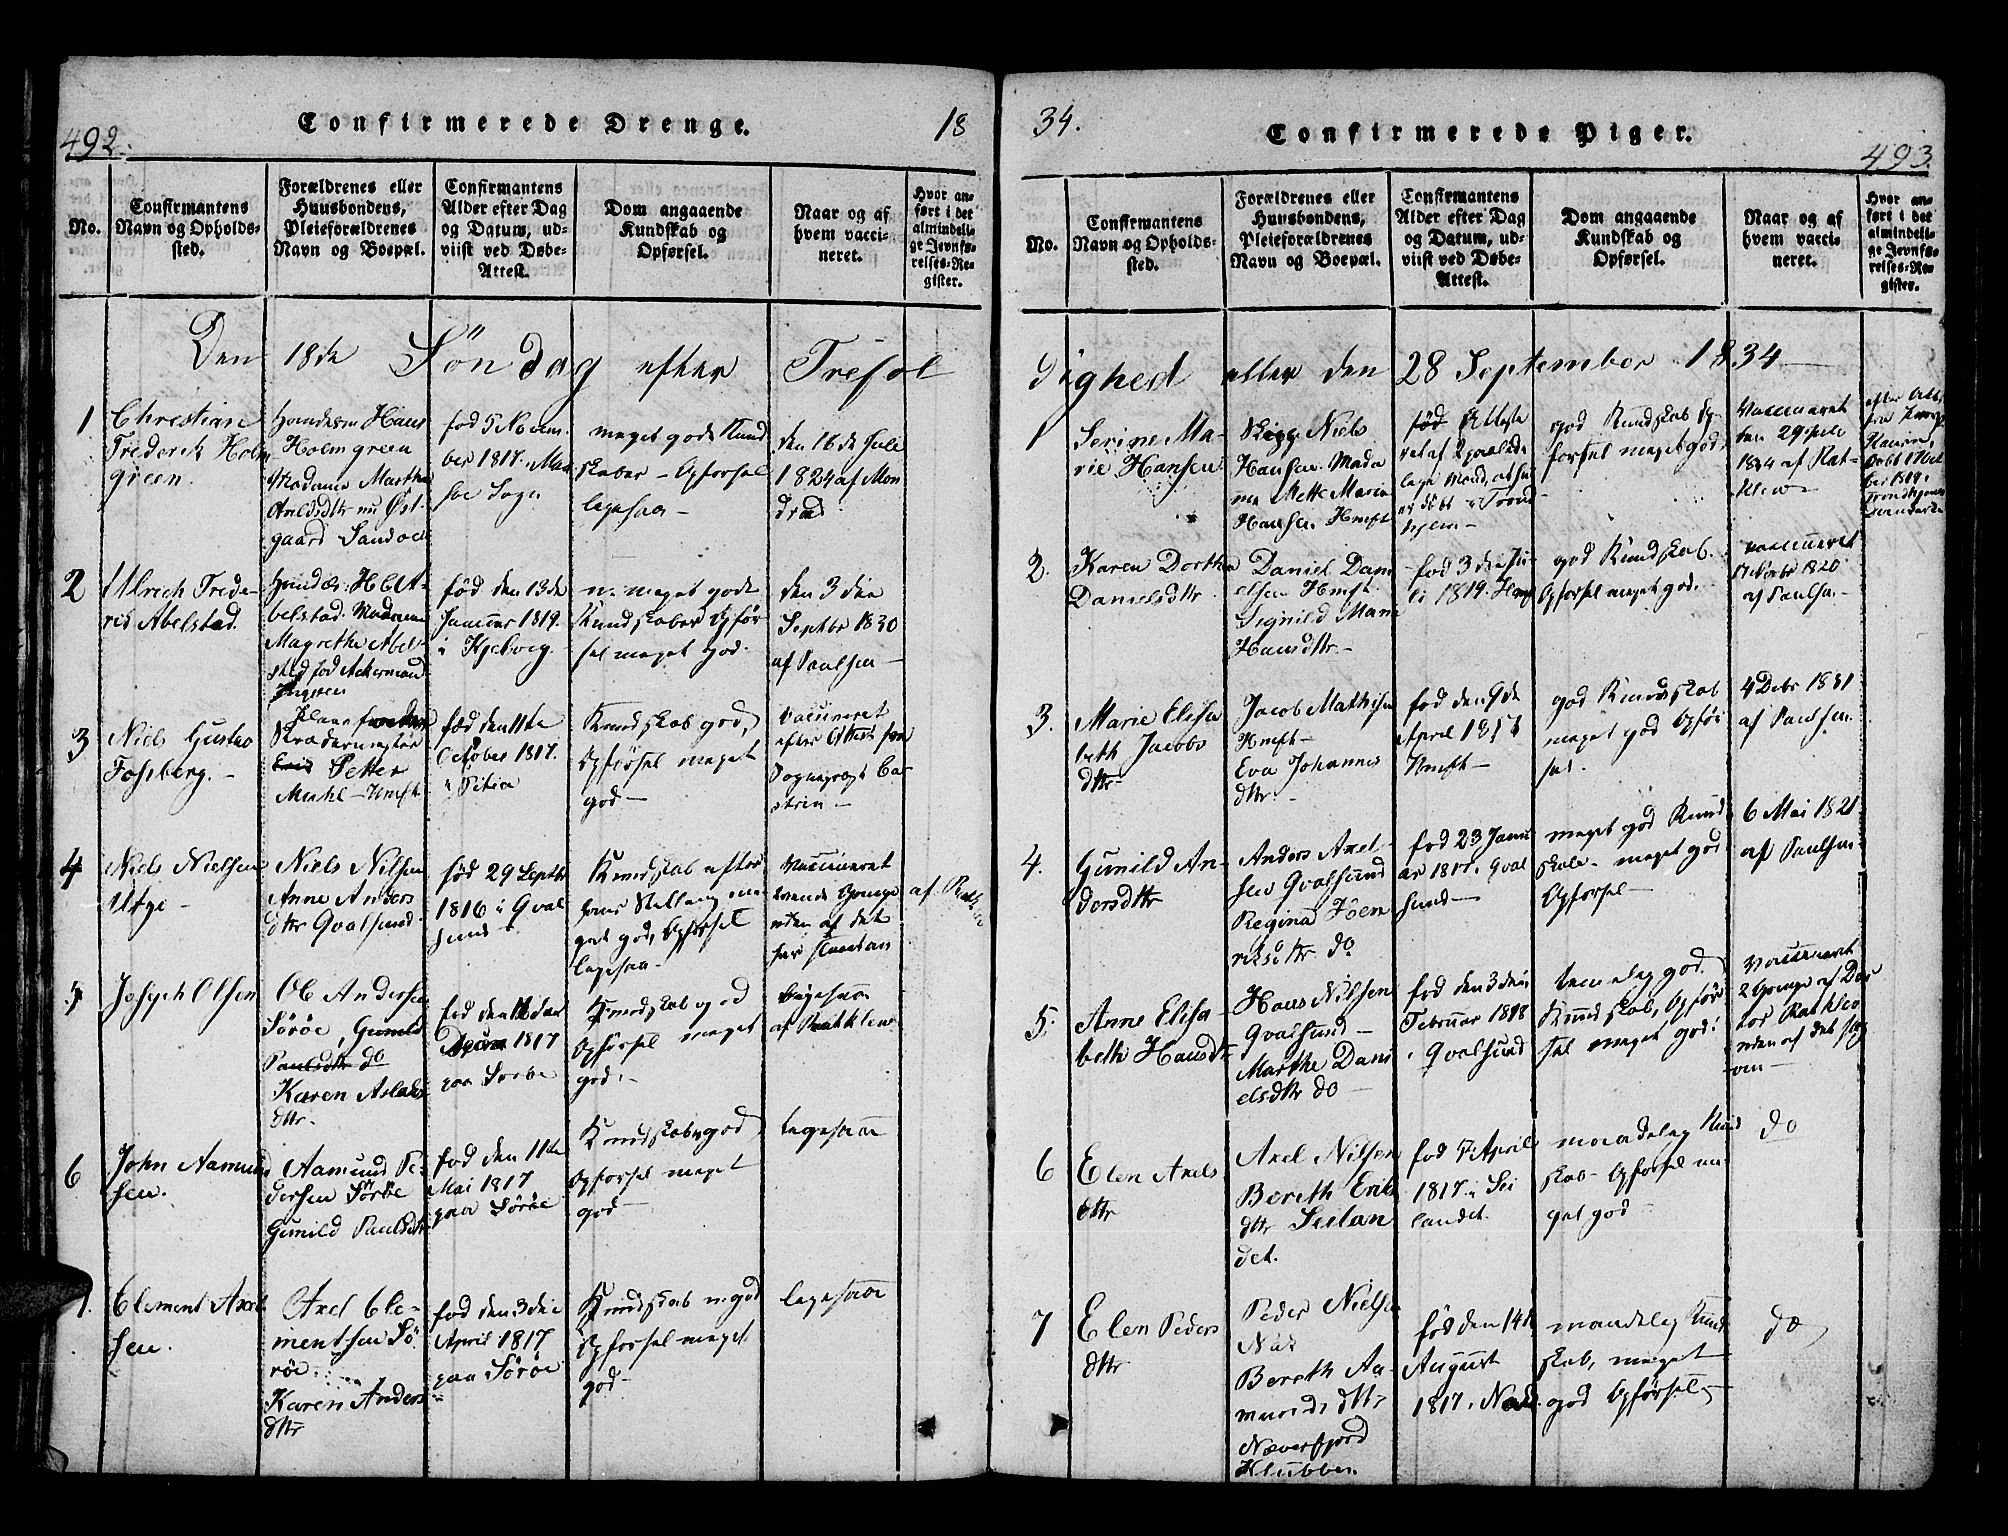 492.
Confirmerede Drenge.
18
No.
Confirmantens
Navn og Opholds-
sted.
Forældrenes eller
Huusbondens,
Pleieforældrenes
Navn og Boepæl.
Confirmantens
Alder efter Dag
og Datum, ud-
viist ved Døbe-
Attest.
Dom angaaende
Kundskab og
Opførsel.
Naar og af
hvem vacci-
neret.
Hvor an-
ført i det
almindeli-
ge Jevnfø-
relses-Re-
gister.
Den 18de Söndag efter Trefol
1
Chrestian
Frederik Holm
green.
Hans
Holmgreen
Madame Martha
nu Øst-
gaard Sandøe
fød 5 Novem-
ber 1817. Mas
søe Sogn
meget gode Kund
skaber - Opførsel
ligesaa -
den 16de Juli
1824 af Mon
drad
2
Ulrich Frede-
rik Abelstad.
A-
belstad. Madame
Magrethe Abel-
sted fød Ackermand
fød den 13de
Januar 1819.
i Kjelvig.
m: meget gode
Kundskaber Opfør
sel meget god.
den 3die
Septbr 1830
af Paulsen -
3
Niels Gustav
Fosberg. -
Skrædermester
Petter
Muhl - Hmft
fød den 11te
October 1817.
i Pitia
Kundskab god,
Opførsel meget
god -
Vaccineret
efter Attest fra
Sogneprest Ca-
strin -
4
Niels Nielsen
Utge -
Niels Nilsen
Anne Anders
dttr Qvalsund.
fød 29 Septbr
1816 i Qval
sund -
Kundskab efter
hans Stilling me
get god, Opførsel
ligesaa -
Vaccineret
trende Gange
uden at det
har slaaet an
af Rathke
5
Joseph Olsen
Ole Andersen
Sörøe, Gunild
Paulsdttr do
Karen Aslaks
dttr.
fød den
1817
paa Sorøe
Kundskab god
Opførsel meget
god. -
ligesaa
af Rathklew
6
John Aamund
sen.
Aamund Pe-
dersen Sörøe
Gunild Paulsdtr
fød den 11te
Mai 1817
paa Sörøe
Kundskab god
Opførsel meget
god -
ligesaa
7.
Clement Axel
sen.
Axel Cle-
mentsen Sö-
røe.
Karen Anders
dttr
fød den 3die
April 1817
paa Sörøe
Kundskab m: god
Opførsel meget
god -
ligesaa
34.
Confirmerede Piger.
493.
No.
Confirmantens
Navn og Opholds-
sted.
Forældrenes eller
Huusbondens,
Pleieforældrenes
Navn og Boepæl.
Confirmantens
Alder efter Dag
og Datum, ud-
viist ved Døbe-
Attest.
Dom angaaende
Kundskab og
Opførsel.
Naar og af
hvem vacci-
neret.
Hvor an-
ført i det
almindeli-
ge Jevnfø-
relses-Re-
gister.
dighed eller den 28 September 1834
1
Serine Ma-
rie Hansen
Niels
Hansen. Mada
me Mette Marie
Hansen. Hmft
fød Atteste
ret af 2 paalide
lige Mænd, at hun
er døbt i Trond
hjem -
god Kundskab Op-
førsel meget god.
Vaccineret
den 29 Juli
1834 af Rat-
klew -
2.
Karen Dorthea
Danielsdttr
Daniel Dani
elsen Hmft.
Signild Marie
Hansdttr. -
fød 3die Ju-
li 1819. Hmft
god Kundskab.
Opførsel meget god.
Vaccineret
17 Novbr 1820
af Paulsen.
3.
Marie Elisa
beth Jacobs
dttr
Jacob Mathisen
Hmft -
Eva Johannes
dttr. -
fød den 9de
April
Hmft -
god Kundskab
meget god Opför
sel.
4 Debr 1831
af Paulsen.
4.
Gunild An-
dersdttr
Anders Axel-
sen Qvalsund
Regina
riksdttr do
fød 23 Janu
ar 1817. Qval
sund -
meget god Kund
skab - meget god
Opførsel -
6 Mai 1821
af Paulsen
5.
Anne Elisa-
beth Hansdtr
Hans Nilsen
Qvalsund -
Marthe Dani
elsdttr do -
fød den 3die
Februar 1818
i Qvalsund
temelig god
Kundskab, Opför
sel meget god.
Vaccineret
2 Gange af Doc
tor Rathklev
uden at det slog
an -
6
Elen Axels
dttr
Axel Nilsen
Bereth Eriks
dttr Seelan
det.
fød 7 April
1817 i Sei
landet.
maadelig Kund
skab - Opførsel me
get god -
do
7
Elen Peders
dttr
Peder Nielsen
Bereth Aa-
munds dttr
Næverfjord
Klubben.
fød den 14de
August
1817.
maadelig Kund
skab, meget
god Opførsel. -
do